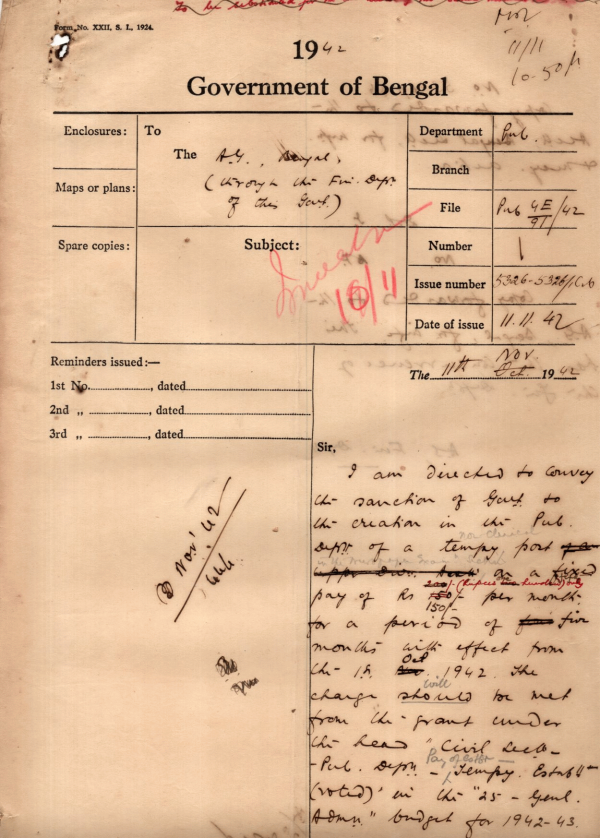 To be substituted for
Form No. XXII, S. L, 1924.
11/11
10-50
1942
Government of Bengal
Enclosures:
To
Department
Pub.
The A.G., Bengal,
(through the Fin. Dept.
of this Govt.)
Branch
Maps or plans:
File
Pub 4E/91/42
Spare copies:
Subject:
Number
1
16/11
Issue number
5326-5326/1
Date of issue
11.11.42
Reminders issued:—
1st No., dated
2nd „ , dated
3rd „ , dated
Nov.
The 11th Oct. 1942
Sir,
I am directed to convey
the sanction of Govt. to
the creation in the Pub.
Dept. of a tempy. post
on a fixed
200/- (Rupees two hundred) only
pay of Rs 150/- per month
150/-
for a period of five
months with effect from
Oct
the 1st 1942. The
will
charge should be met
from the grant under
the head "Civil Sectt.
Pay of
- Pub. Deptt. - Tempy. Establt.
(voted)" in the "25 - Genl.
Admn." budget for 1942-43.
D Nov' 42
444